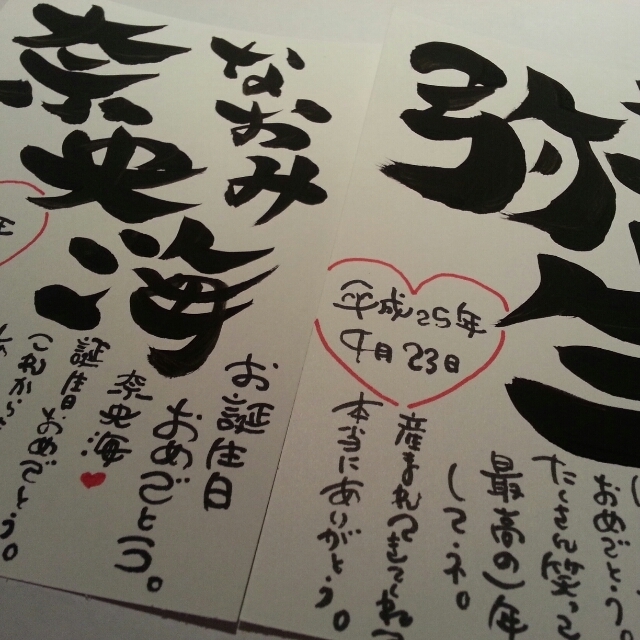 弥
おめでとう。
たくさん笑って
最高の1年
して・ネ。
平成25年
9月23日
産まれてきてくれて
本当にありがとう。
なおみ
奈央海
お誕生日
おめでとう。
奈央海
誕生日おめでとう。
これから